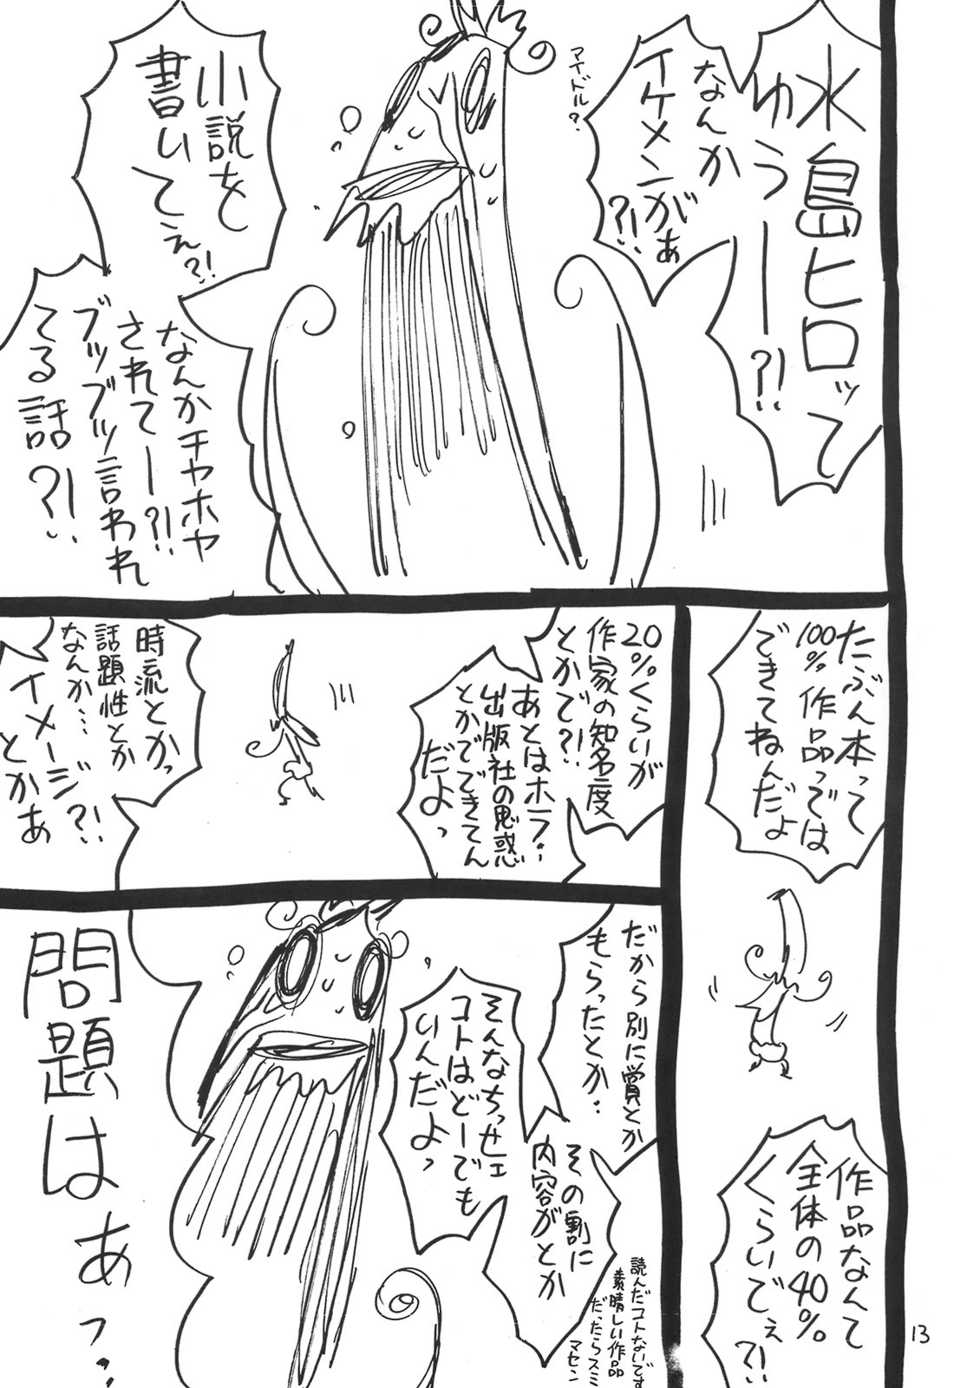 水島ヒロって
ゆうー?!
なんか
イケメンがぁ
?!!
マイドル?
小説を
書いてぇ?!
なんかチヤホヤ
されてー?!!
ブツブツ言われ
てる話?!
たぶん本って
100%作品っでは
できてねんだよ
作品なんて
全体の40%
くらいでぇ?!
20%くらいが
作家の知名度
とかで?!
あとはホラ..
出版社の思惑
とかでできてん
だよっ
時流とかっ
話題性とか
なんか…
イメージ?!
とかぁ
だから別に賞とか
もらったとか..
その割に
内容がとか
そんなちっせェ
コトはどーでも
いんだよっ
読んだコトないです
素晴しい作品
だったらスミ
マセン
問題はぁっ..
13